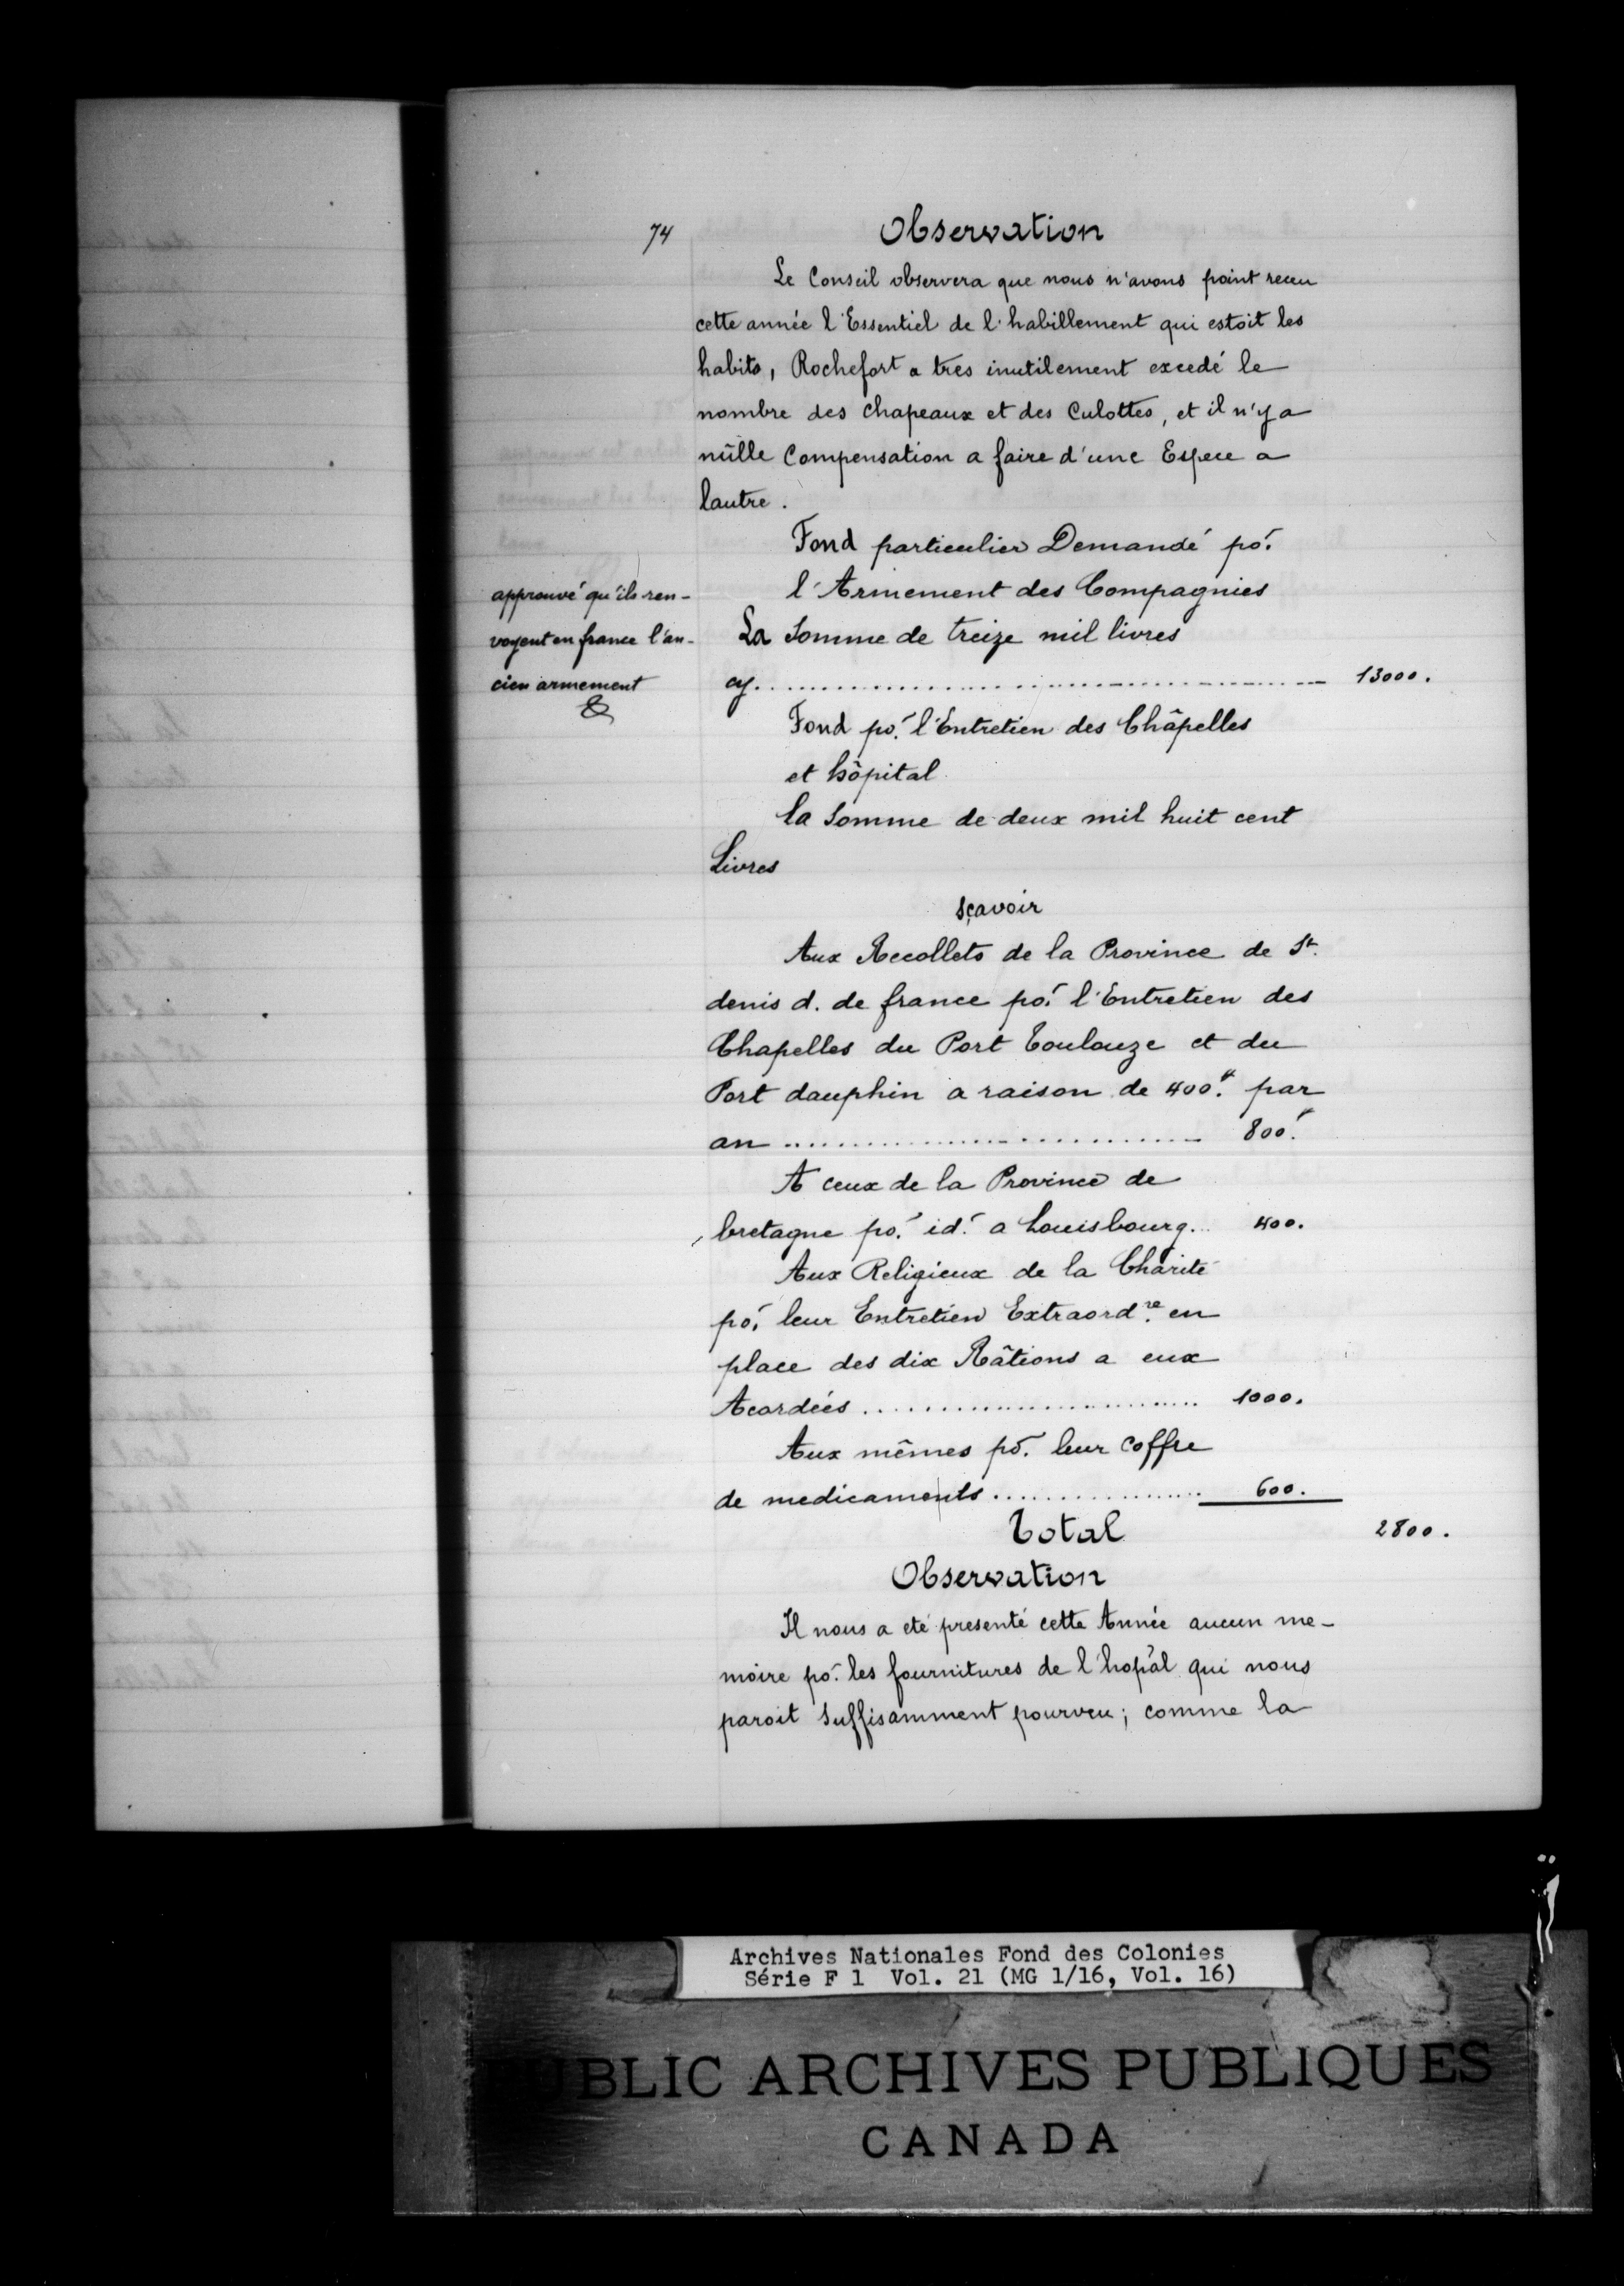 74
Observation
Le Conseil observera que nous n'avons point receu
cette année l'Essentiel de l'habillement qui estoit les
habits, Rochefort a tres inutilement excedé le
nombre des chapeaux et des Culottes, et il n'y a
nûlle Compensation a faire d'une Espece a
lautre.
Fond particulier Demandé po.r
l'Armement des Compagnies
approuvé qu'ils ren-
voyent en france l'an-
cien armement
&
La Somme de treize mil livres
cy ........ 13000.
Fond po.r l'Entretien des Châpelles
et hôpital
la Somme de deux mil huit cent
Livres
sçavoir
Aux Recollets de la Province de St.
denis d. de france po.r l'Entretien des
Chapelles du Port toulouze et du
Port dauphin a raison de 400.# par
an ........ 800.#
A ceux de la Province de
bretagne po.r id.' a Louisbourg... 400.
Aux Religieux de la Charité
po.r leur Entretien Extraord.re en
place des dix Râtions a eux
Acordéés ........ 1000.
Aux mêmes po.r leur coffre
de medicaments ........ 600.
Total 2800.
Observation
Il nous a eté presenté cette Année aucun me-
moire po.r les fournitures de l'hop'al qui nous
paroit suffisamment pourveu; comme la
Archives Nationales Fond des Colonies
Série F 1 Vol. 21 (MG 1/16, Vol. 16)
PUBLIC ARCHIVES PUBLIQUES
CANADA